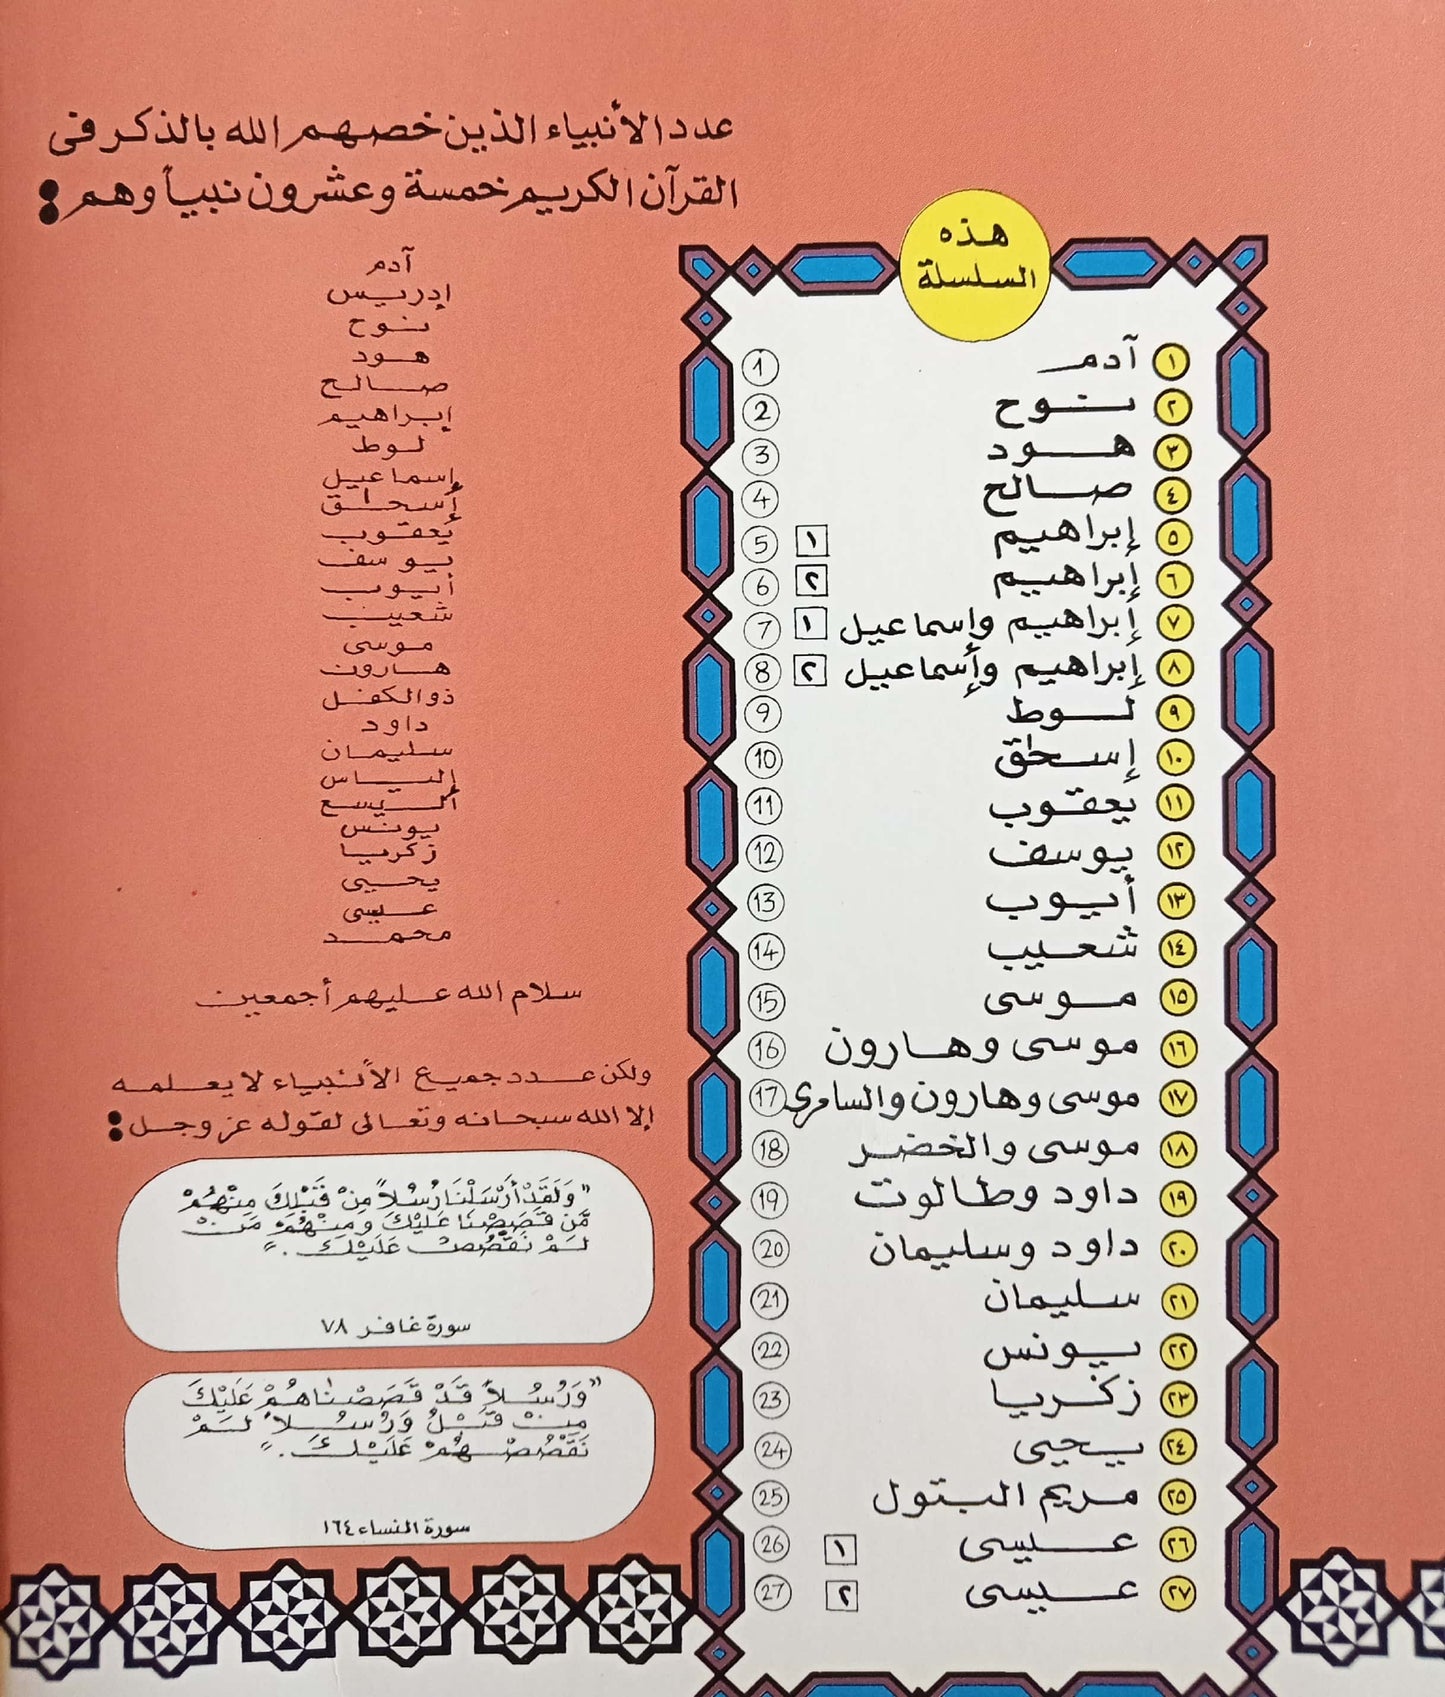 عدد الأنبياء الذين خصهم الله بالذكر فى
القرآن الكريم خمسة وعشرون نبياً وهم :
آدم
إدريس
نوح
هود
صالح
إبراهيم
لوط
إسماعيل
إسحٰق
يعقوب
يوسف
أيوب
شعيب
موسى
هارون
ذوالكفل
داود
سليمان
إلياس
أليسع
يونس
زكريا
يحيى
عيسى
محمد
سلام الله عليهم أجمعين
ولكن عدد جميع الأنبياء لا يعلمه
إلا الله سبحانه وتعالى لقوله عز وجل :
"وَلَقَدْ أَرْسَلْنَا رُسُلاً مِنْ قَبْلِكَ مِنْهُمْ
مَّن قَصَصْنَا عَلَيْكَ وَمِنْهُمْ مَنْ
لَمْ نَقْصُصْ عَلَيْكَ ."
سورة غافر ٧٨
"وَرُسُلاً قَدْ قَصَصْنَاهُمْ عَلَيْكَ
مِنْ قَبْلُ وَرُسُلاً لَمْ
نَقْصُصْهُمْ عَلَيْكَ ."
سورة النساء ١٦٤
هذه
السلسلة
١ آدم 1
٢ نوح 2
٣ هود 3
٤ صالح 4
٥ إبراهيم ١ 5
٦ إبراهيم ٢ 6
٧ إبراهيم وإسماعيل ١ 7
٨ إبراهيم وإسماعيل ٢ 8
٩ لوط 9
١٠ إسحٰق 10
١١ يعقوب 11
١٢ يوسف 12
١٣ أيوب 13
١٤ شعيب 14
١٥ موسى 15
١٦ موسى وهارون 16
١٧ موسى وهارون والسامرى 17
١٨ موسى والخضر 18
١٩ داود وطالوت 19
٢٠ داود وسليمان 20
٢١ سليمان 21
٢٢ يونس 22
٢٣ زكريا 23
٢٤ يحيى 24
٢٥ مريم البتول 25
٢٦ عيسى ١ 26
٢٧ عيسى ٢ 27